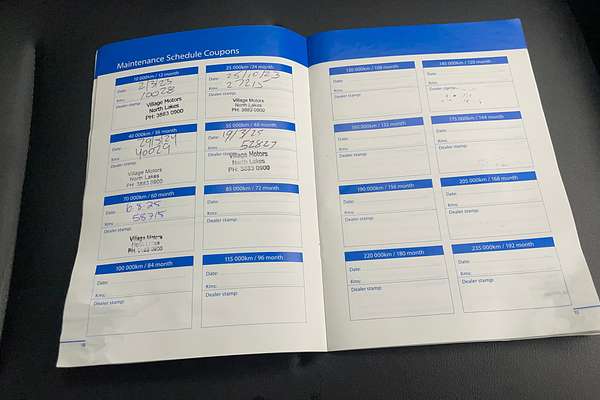 Maintenance Schedule Coupons
10 000km / 12 month
Date: 2/3/23
Kms: 10028
Dealer stamp:
Village Motors
North Lakes
PH: 3883 0900
25 000km / 24 month
Date: 25/10/23
Kms: 27215
Dealer stamp:
Village Motors
North Lakes
PH: 3883 0900
40 000km / 36 month
Date:
Kms: 40029
Dealer stamp:
Village Motors
North Lakes
PH: 3883 0900
Date: 19/3/25
Kms: 52827
Dealer stamp:
Village Motors
North Lakes
PH: 3883 0900
70 000km / 60 month
Date: 6.8.25
Kms: 58715
Dealer stamp:
Village Motors
North Lakes
PH:
85 000km / 72 month
Date:
Kms:
Dealer stamp:
100 000km / 84 month
Date:
Kms:
Dealer stamp:
115 000km / 96 month
Date:
Kms:
Dealer stamp:
130 000km / 108 month
Date:
Kms:
Dealer stamp:
Date:
Kms:
Dealer stamp:
160 000km / 132 month
Date:
Kms:
Dealer stamp:
175 000km / 144 month
Date:
Kms:
Dealer stamp:
190 000km / 156 month
Date:
Kms:
Dealer stamp:
205 000km / 168 month
Date:
Kms:
Dealer stamp:
220 000km / 180 month
Date:
Kms:
Dealer stamp:
235 000km / 192 month
Date:
Kms:
Dealer stamp: